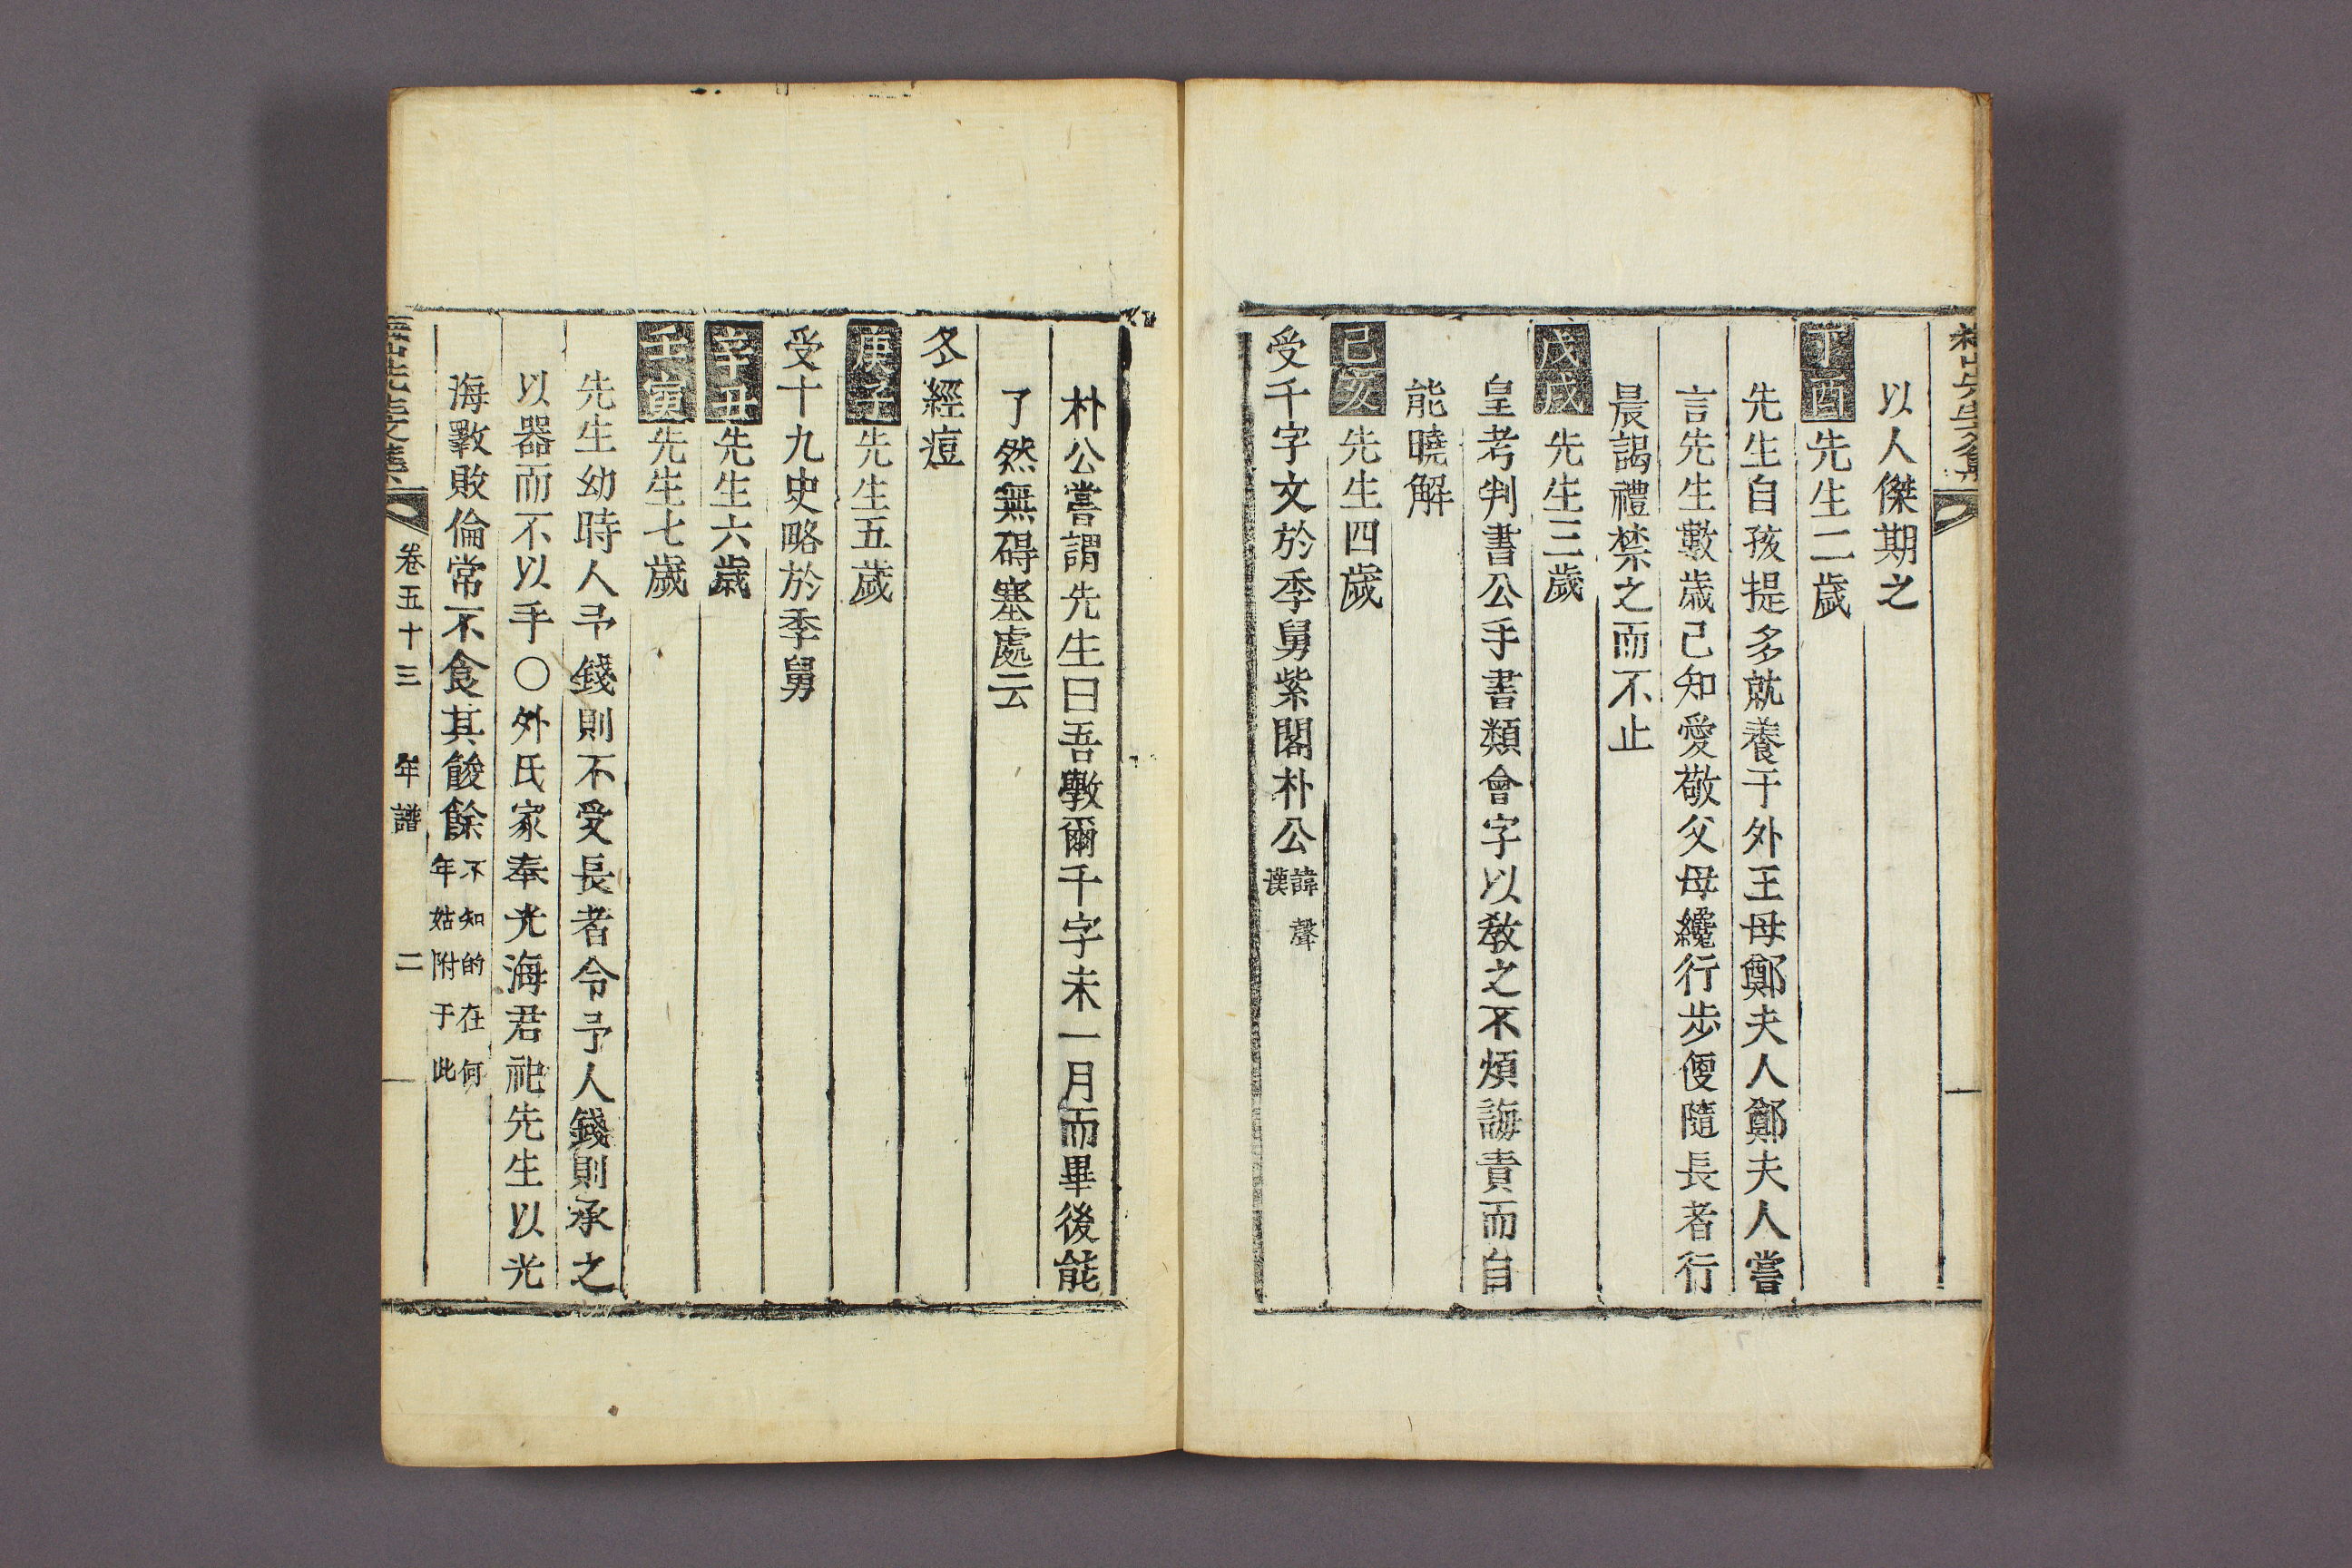 以人傑期之
丁酉先生二歲
先生自孩提多就養于外王母鄭夫人鄭夫人嘗
言先生數歲已知愛敬父母纔行步便隨長者行
晨謁禮禁之而不止
戊戌先生三歲
皇考判書公手書類會字以敎之不煩誨責而自
能曉解
己亥先生四歲
受千字文於季舅紫閣朴公諱聲漢
朴公嘗謂先生曰吾斅爾千字未一月而畢後能
了然無碍塞處云
冬經痘
庚子先生五歲
受十九史略於季舅
辛丑先生六歲
壬寅先生七歲
先生幼時人予錢則不受長者令予人錢則承之
以器而不以手○外氏家奉光海君祀先生以光
海斁敗倫常不食其餕餘不知的在何年姑附于此
卷五十三 年譜 二